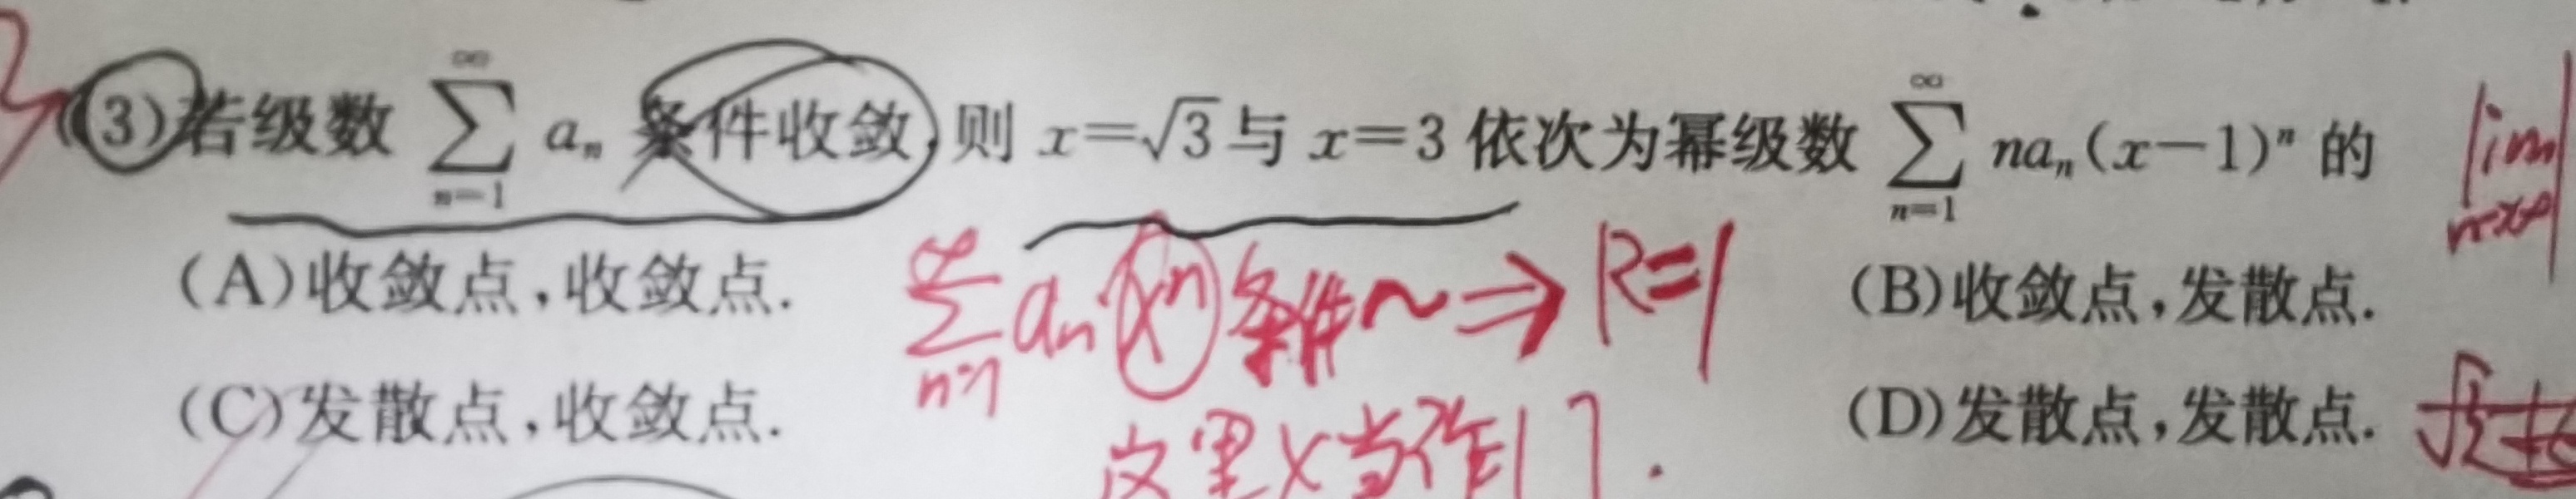 (3)若级数 $\sum_{n=1}^{\infty} a_n$ 条件收敛,则 $x=\sqrt{3}$ 与 $x=3$ 依次为幂级数 $\sum_{n=1}^{\infty} na_n(x-1)^n$ 的
(A)收敛点,收敛点. (B)收敛点,发散点.
$\sum_{n=1}^{\infty} a_n x^n$ 条件~⇒ R=1
(C)发散点,收敛点. (D)发散点,发散点.
这里x当作1?.
lim